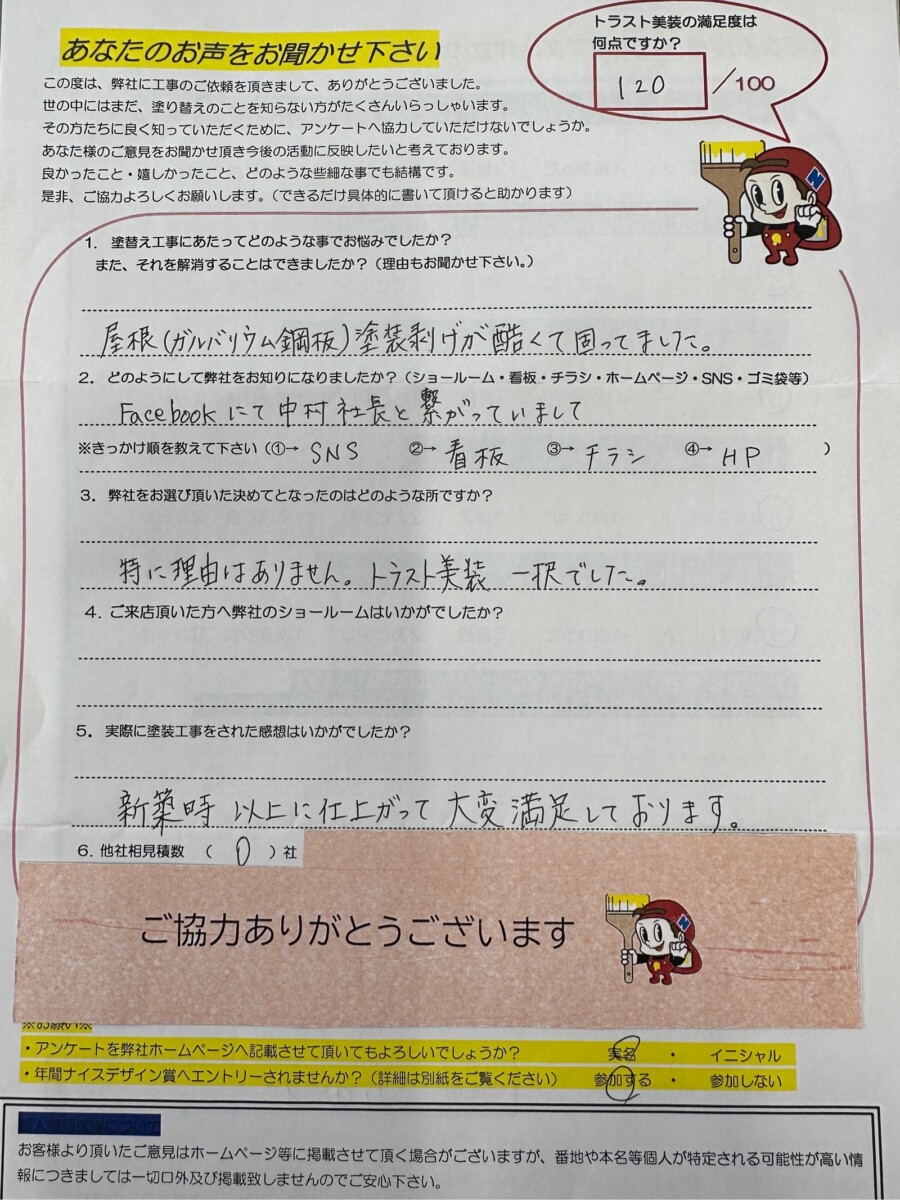 あなたのお声をお聞かせ下さい
トラスト美装の満足度は
何点ですか?
120 /100
この度は、弊社に工事のご依頼を頂きまして、ありがとうございました。
世の中にはまだ、塗り替えのことを知らない方がたくさんいらっしゃいます。
その方たちに良く知っていただくために、アンケートへ協力していただけないでしょうか。
あなた様のご意見をお聞かせ頂き今後の活動に反映したいと考えております。
良かったこと・嬉しかったこと、どのような些細な事でも結構です。
是非、ご協力よろしくお願いします。(できるだけ具体的に書いて頂けると助かります)
N
1. 塗替え工事にあたってどのような事でお悩みでしたか?
また、それを解消することはできましたか?(理由もお聞かせ下さい。)
屋根(ガルバリウム鋼板)塗装剥げが酷くて困ってました。
2. どのようにして弊社をお知りになりましたか?(ショールーム・看板・チラシ・ホームページ・SNS・ゴミ袋等)
Facebookにて中村社長と繋がっていまして
※きっかけ順を教えて下さい(①→ SNS ②→ 看板 ③→ チラシ ④→ HP )
3. 弊社をお選び頂いた決めてとなったのはどのような所ですか?
特に理由はありません。トラスト美装 一択でした。
4. ご来店頂いた方へ弊社のショールームはいかがでしたか?
5. 実際に塗装工事をされた感想はいかがでしたか?
新築時 以上に仕上がって 大変満足しております。
6. 他社相見積数 ( 0 )社
ご協力ありがとうございます
N
※お願い※
・アンケートを弊社ホームページへ記載させて頂いてもよろしいでしょうか? 実名 ・ イニシャル
・年間ナイスデザイン賞へエントリーされませんか?(詳細は別紙をご覧ください) 参加する ・ 参加しない
個人情報保護について
お客様より頂いたご意見はホームページ等に掲載させて頂く場合がございますが、番地や本名等個人が特定される可能性が高い情
報につきましては一切口外及び掲載致しませんのでご安心下さい。